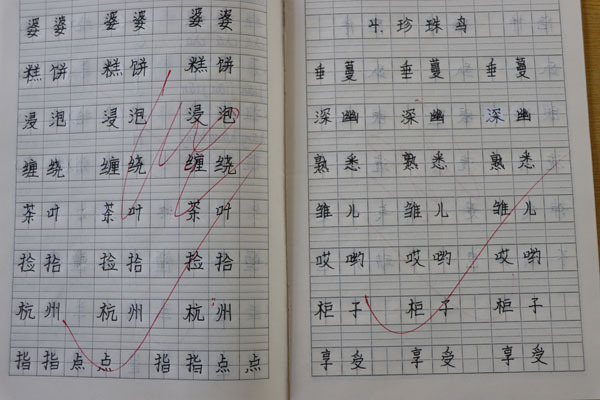 婆婆 婆婆 婆婆
糕饼 糕饼 糕饼
浸泡 浸泡 浸泡
缠绕 缠绕 缠绕
茶叶 茶叶 茶叶
捡拾 捡拾 捡拾
杭州 杭州 杭州
指指点点 指指点点
4.珍珠鸟
垂蔓 垂蔓 垂蔓
深幽 深幽 深幽
熟悉 熟悉 熟悉
雏儿 雏儿 雏儿
哎哟 哎哟 哎哟
柜子 柜子 柜子
享受 享受 享受